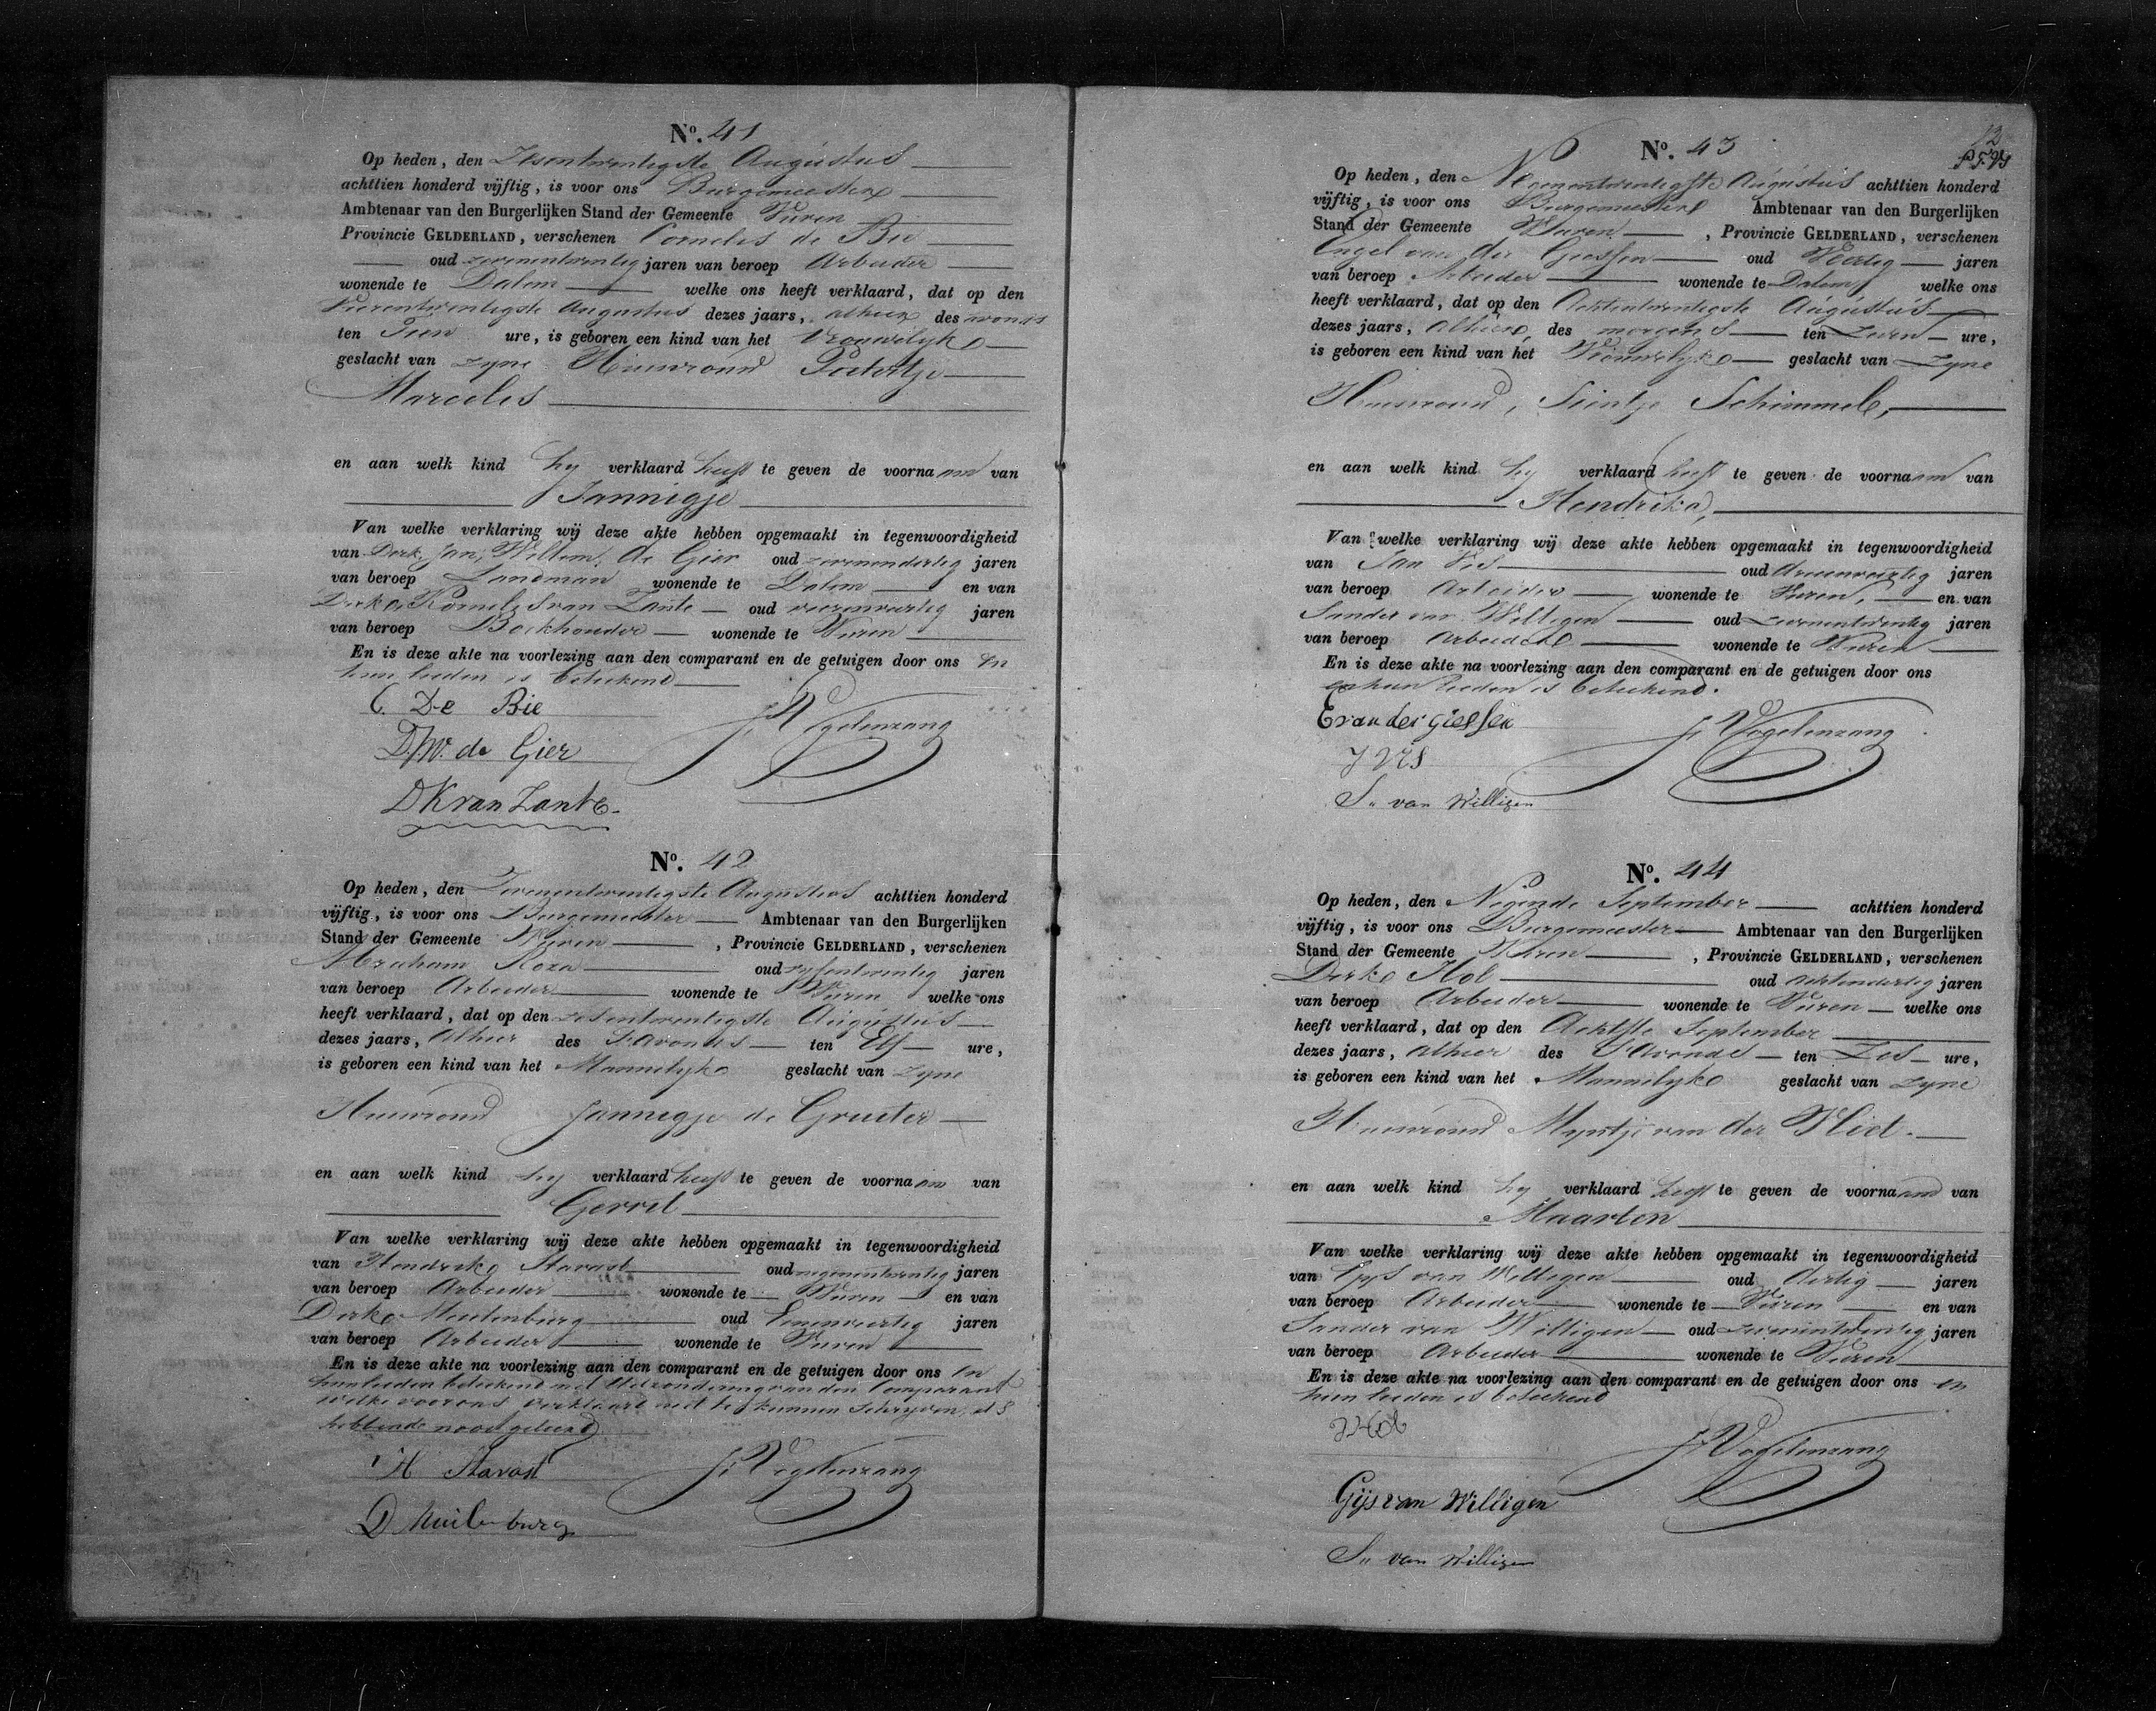 No. 41
Op heden, den Zesentwentigste Augustus
achttien honderd vijftig, is voor ons Burgemeester
Ambtenaar van den Burgerlijken Stand der Gemeente Vuren
Provincie GELDERLAND, verschenen Cornelis de Bie
oud zevenentwentig jaren van beroep Arbeider
wonende te Dalem welke ons heeft verklaard, dat op den
Vierentwentigste Augustus dezes jaars, alhier des avonds
ten Tien ure, is geboren een kind van het Vrouwelyke
geslacht van zyne Huisvrouw Pietertje
Marcelis
en aan welk kind hy verklaard heeft te geven de voornaam van
Jannigje
Van welke verklaring wij deze akte hebben opgemaakt in tegenwoordigheid
van Derk Jan Willem de Gier oud zevenendertig jaren
van beroep Landman wonende te Dalem en van
Derk Kornelis van Zante oud vierenveertig jaren
van beroep Boekhouder wonende te Vuren
En is deze akte na voorlezing aan den comparant en de getuigen door ons en
hun lieden is beteekend
C. De Bie
J. Vogelenzang
D.J.W. de Gier
D K van Zante
No. 42
Op heden, den Zevenentwentigste Augustus achttien honderd
vijftig, is voor ons Burgemeester Ambtenaar van den Burgerlijken
Stand der Gemeente Vuren, Provincie GELDERLAND, verschenen
Abraham Roza oud vyfentwentig jaren
van beroep Arbeider wonende te Vuren welke ons
heeft verklaard, dat op den zesentwentigste Augustus
dezes jaars, alhier des S'avonds ten Elf ure,
is geboren een kind van het Mannelyke geslacht van zyne
Huisvrouw Jannigje de Gruiter
en aan welk kind hy verklaard heeft te geven de voornaam van
Gerrit
Van welke verklaring wij deze akte hebben opgemaakt in tegenwoordigheid
van Hendrik Stavast oud negenentwentig jaren
van beroep Arbeider wonende te Vuren en van
Derk Meulenburg oud Eenenveertig jaren
van beroep Arbeider wonende te Vuren
En is deze akte na voorlezing aan den comparant en de getuigen door ons en
hunlieden beteekend met Uitzondering van den Comparant
welke voor ons verklaart niet te kunnen schryven, als
hebbende nooit geleerd
H Stavast
J. Vogelenzang
D Muilenburg
12
No. 43
Op heden, den Negenentwentigste Augustus achttien honderd
vijftig, is voor ons Burgemeester Ambtenaar van den Burgerlijken
Stand der Gemeente Vuren, Provincie GELDERLAND, verschenen
Engel van der Giessen oud Veertig jaren
van beroep Arbeider wonende te Dalem welke ons
heeft verklaard, dat op den Achtentwentigste Augustus
dezes jaars, alhier des morgens ten Zeven ure,
is geboren een kind van het Vrouwelyke geslacht van Zyne
Huisvrouw, Sientje Schimmel,
en aan welk kind hy verklaard heeft te geven de voornaam van
Hendrika,
Van welke verklaring wij deze akte hebben opgemaakt in tegenwoordigheid
van Jan Vis oud drieenveertig jaren
van beroep Arbeider wonende te Vuren, en van
Sander van Willigen oud zevenentwentig jaren
van beroep Arbeider wonende te Vuren
En is deze akte na voorlezing aan den comparant en de getuigen door ons
en hun lieden is beteekend.
E van der giessen
J. Vogelenzang
J VIS
S.. van Willigen
No. 44
Op heden, den Negende September achttien honderd
vijftig, is voor ons Burgemeester Ambtenaar van den Burgerlijken
Stand der Gemeente Vuren, Provincie GELDERLAND, verschenen
Derk Hol oud achtendertig jaren
van beroep Arbeider wonende te Vuren welke ons
heeft verklaard, dat op den Achtste September
dezes jaars, alhier des S'avonds ten Zes ure,
is geboren een kind van het Mannelyke geslacht van zyne
Huisvrouw Myntje van der Vliet.
en aan welk kind hy verklaard heeft te geven de voornaam van
Maarten
Van welke verklaring wij deze akte hebben opgemaakt in tegenwoordigheid
van Gys van Willigen oud dertig jaren
van beroep Arbeider wonende te Vuren en van
Sander van Willigen oud zevenentwentig jaren
van beroep Arbeider wonende te Vuren
En is deze akte na voorlezing aan den comparant en de getuigen door ons en
hun lieden is beteekend
J. Vogelenzang
Gijs van Willigen
S.. van Willigen